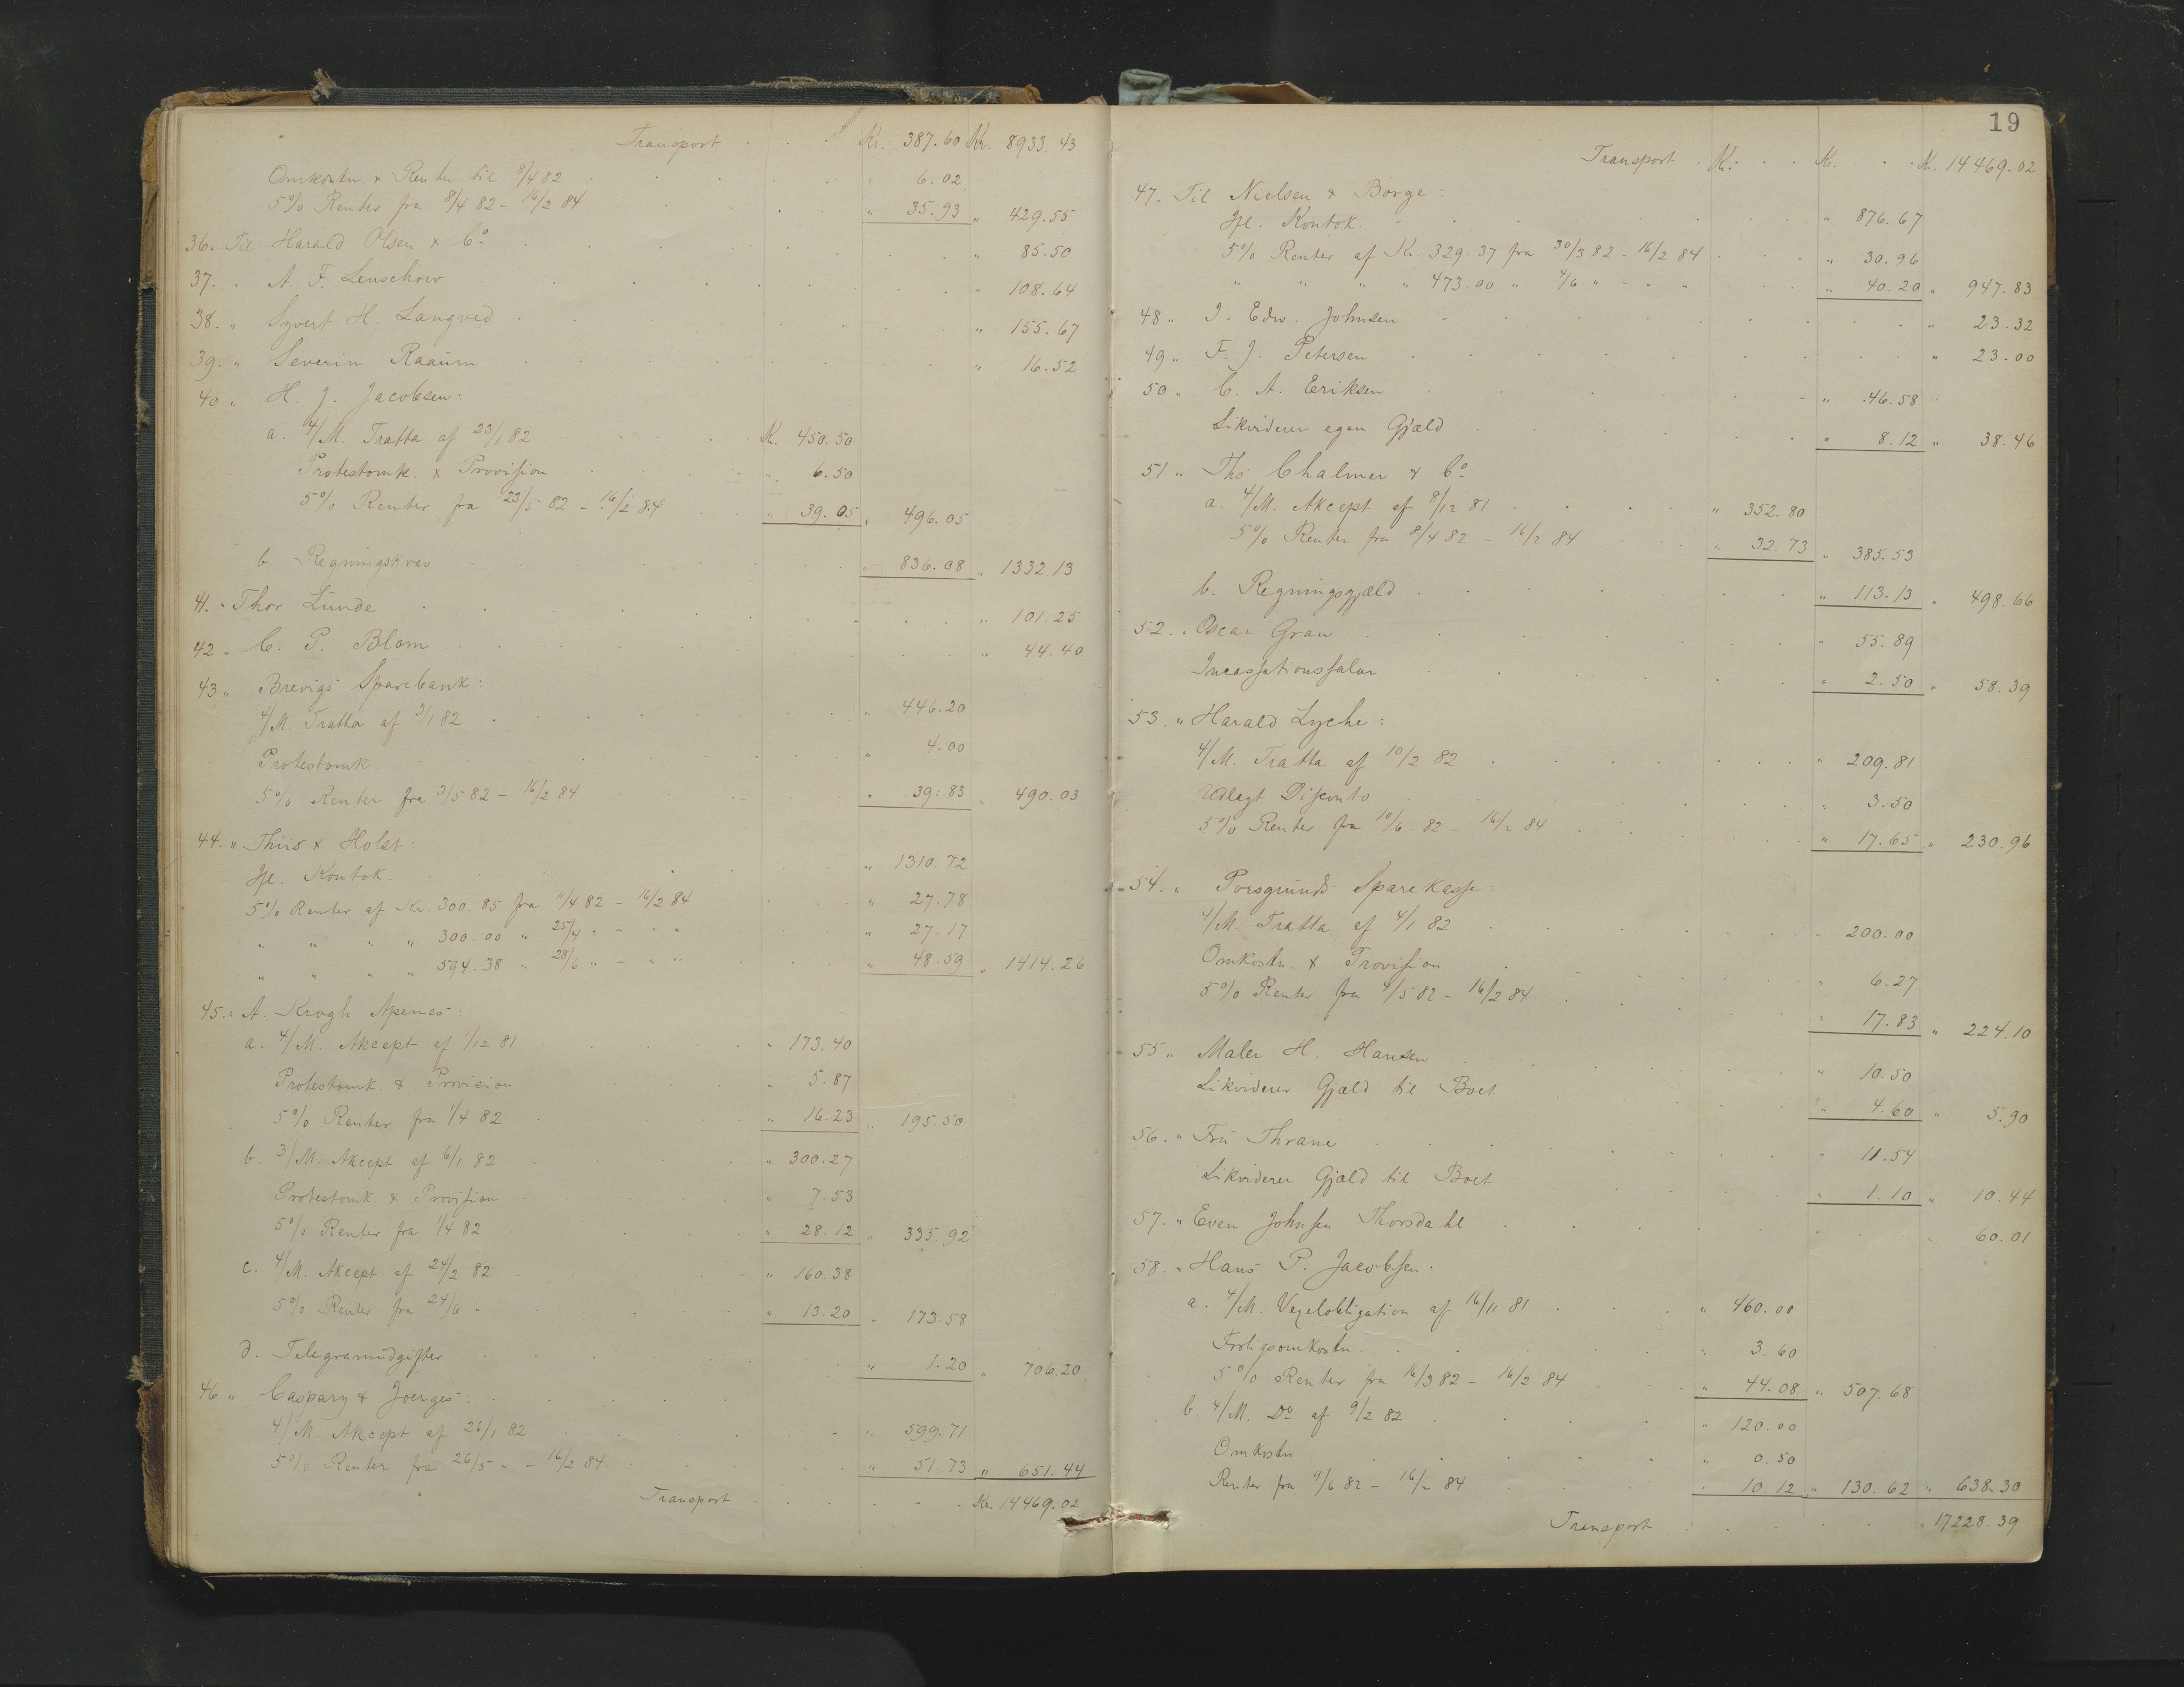 Transport . . . Kr. 387.60 Kr. 8933.43
Omkostn. & Renter til 8/4 82 " 6.02
5% Renter fra 8/4 82 - 16/2 84 " 35.93 " 429.55
36. Til Harald Olsen & Co " 85.50
37. " A. F. Lenschow " 108.64
38. " Syvert H. Langved " 155.67
39. " Severin Raaum " 16.52
40 " H. J. Jacobsen:
a. 4/M. Tratta af 23/1 82 Kr. 450.50
Protestomk. & Provision " 6.50
5% Renter fra 23/5 82 - 16/2 84 " 39.05 " 496.05
b. Regningskrav " 836.08 " 1332.13
41. " Thor Lunde " 101.25
42 " C. P. Blom " 44.40
43 " Brevigs Sparebank:
4/M. Tratta af 3/1 82 " 446.20
Protestomk. " 4.00
5% Renter fra 3/5 82 - 16/2 84 " 39.83 " 490.03
44. " Thiis & Holst:
Ifl. Kontok. " 1310.72
5% Renter af Kr. 300.85 fra 11/4 82 - 16/2 84 " 27.78
" " " " 300.00 " 25/4 " - " " " 27.17
" " " " 594.38 " 28/6 " - " " " 48.59 " 1414.26
45. " A. Krogh Apenes:
a. 4/M. Akcept af 1/12 81 " 173.40
Protestomk. & Provision " 5.87
5% Renter fra 1/4 82 " 16.23 " 195.50
b. 3/M. Akcept af 6/1 82 " 300.27
Protestomk. & Provision " 7.53
5% Renter fra 1/4 82 " 28.12 " 335.92
c. 4/M. Akcept af 24/2 82 " 160.38
5% Renter fra 24/6 " " 13.20 " 173.58
d. Telegramudgifter " 1.20 " 706.20
46 " Caspary & Joerges:
4/M. Akcept af 26/1 82 " 599.71
5% Renter fra 26/5 " - 16/2 84 " 51.73 " 651.44
Transport . . . Kr. 14469.02
19
Transport . Kr. . . Kr. . . Kr. 14469.02
47. Til Nielsen & Borge:
Ifl. Kontok. " 876.67
5% Renter af Kr. 329.37 fra 30/3 82 - 16/2 84 " 30.96
" " " " 473.00 " 4/6 " - " " " 40.20 " 947.83
48 " J. Edw. Johnsen " 23.32
49 " F. J. Petersen " 23.00
50 " C. A. Eriksen " 46.58
Likviderer egen Gjæld " 8.12 " 38.46
51 " Ths. Chalmer & Co
a. 4/M. Akcept af 8/12 81 " 352.80
5% Renter fra 8/4 82 - 16/2 84 " 32.73 " 385.53
b. Regningsgjæld " 113.13 " 498.66
52. " Oscar Gran " 55.89
Incassationssalær " 2.50 " 58.39
53. " Harald Lyche:
4/M. Tratta af 10/2 82 " 209.81
Udlagt Disconto " 3.50
5% Renter fra 10/6 82 - 16/2 84 " 17.65 " 230.96
54. " Porsgrunds Sparekasse:
4/M. Tratta af 4/1 82 " 200.00
Omkostn. & Provision " 6.27
5% Renter fra 4/5 82 - 16/2 84 " 17.83 " 224.10
55 " Maler H. Hansen " 10.50
Likviderer Gjæld til Boet " 4.60 " 5.90
56. " Fru Thrane " 11.54
Likviderer Gjæld til Boet " 1.10 " 10.44
57. " Even Johnsen Thorsdahl 60.01
58. " Hans P. Jacobsen:
a. 4/M. Vexelobligation af 16/11 81 " 460.00
Forligsomkostn. " 3.60
5% Renter fra 16/3 82 - 16/2 84 " 44.08 " 507.68
b. 4/M. Do af 9/2 82 " 120.00
Omkostn. " 0.50
Renter fra 9/6 82 - 16/2 84 " 10.12 " 130.62 " 638.30
Transport " 17228.39